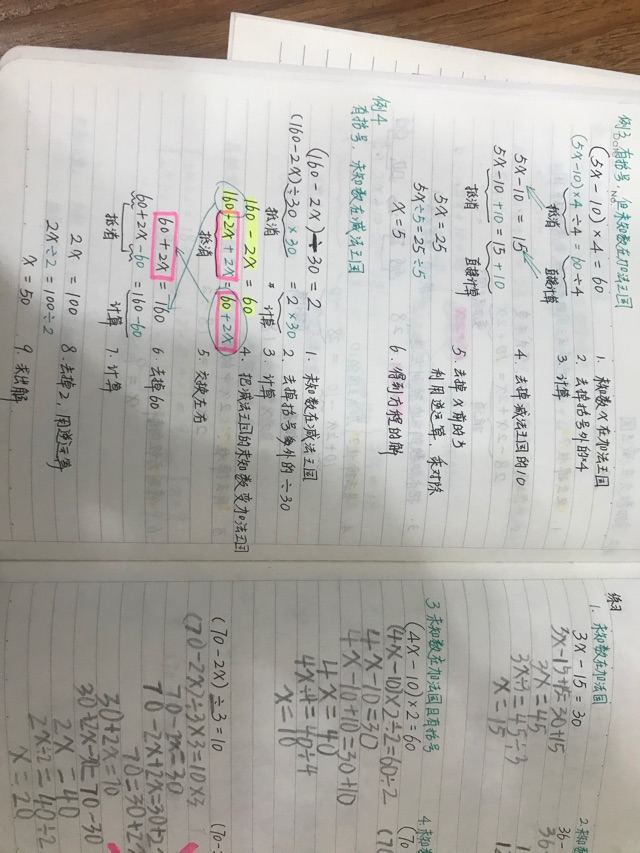 例3 有括号，但未知数在加法王国
(5x-10)×4=60 1. 未知数x在加法王国
(5x-10)×4÷4=60÷4 2. 去掉括号外的×4
抵消 直接计算 3. 计算
5x-10=15 4. 去掉减法王国的10
5x-10+10=15+10
抵消 直接计算
5x=25 5. 去掉x前的5
利用逆运算，乘对除
5x÷5=25÷5
x=5 6. 得到方程的解
例4
有括号，未知数在减法王国
(160-2x)÷30=2 1. 未知数在减法王国
(160-2x)÷30×30=2×30 2. 去掉括号外的÷30
抵消 计算 3. 计算
160-2x=60 4. 把减法王国的未知数变加法王国
160-2x+2x=60+2x
抵消 5. 交换左右
60+2x=160 6. 去掉60
60+2x-60=160-60
抵消 计算 7. 计算
2x=100 8. 去掉2，用逆运算
2x÷2=100÷2
x=50 9. 求出解
练习
1. 未知数在加法国
3x-15=30
3x-15+15=30+15
3x=45
3x÷3=45÷3
x=15
3 未知数在加法国且有括号
(4x-10)×2=60
(4x-10)×2÷2=60÷2
4x-10=30
4x-10+10=30+10
4x=40
4x÷4=40÷4
x=10
(70-2x)÷3=10
(70-2x)÷3×3=10×3
70-2x=30
70-2x+2x=30+2x
70=30+2x
30+2x=70
30+2x-30=70-30
2x=40
2x÷2=40÷2
x=20
2. 未知数
36-
36-
4. 未知数
(70
(70
(70-